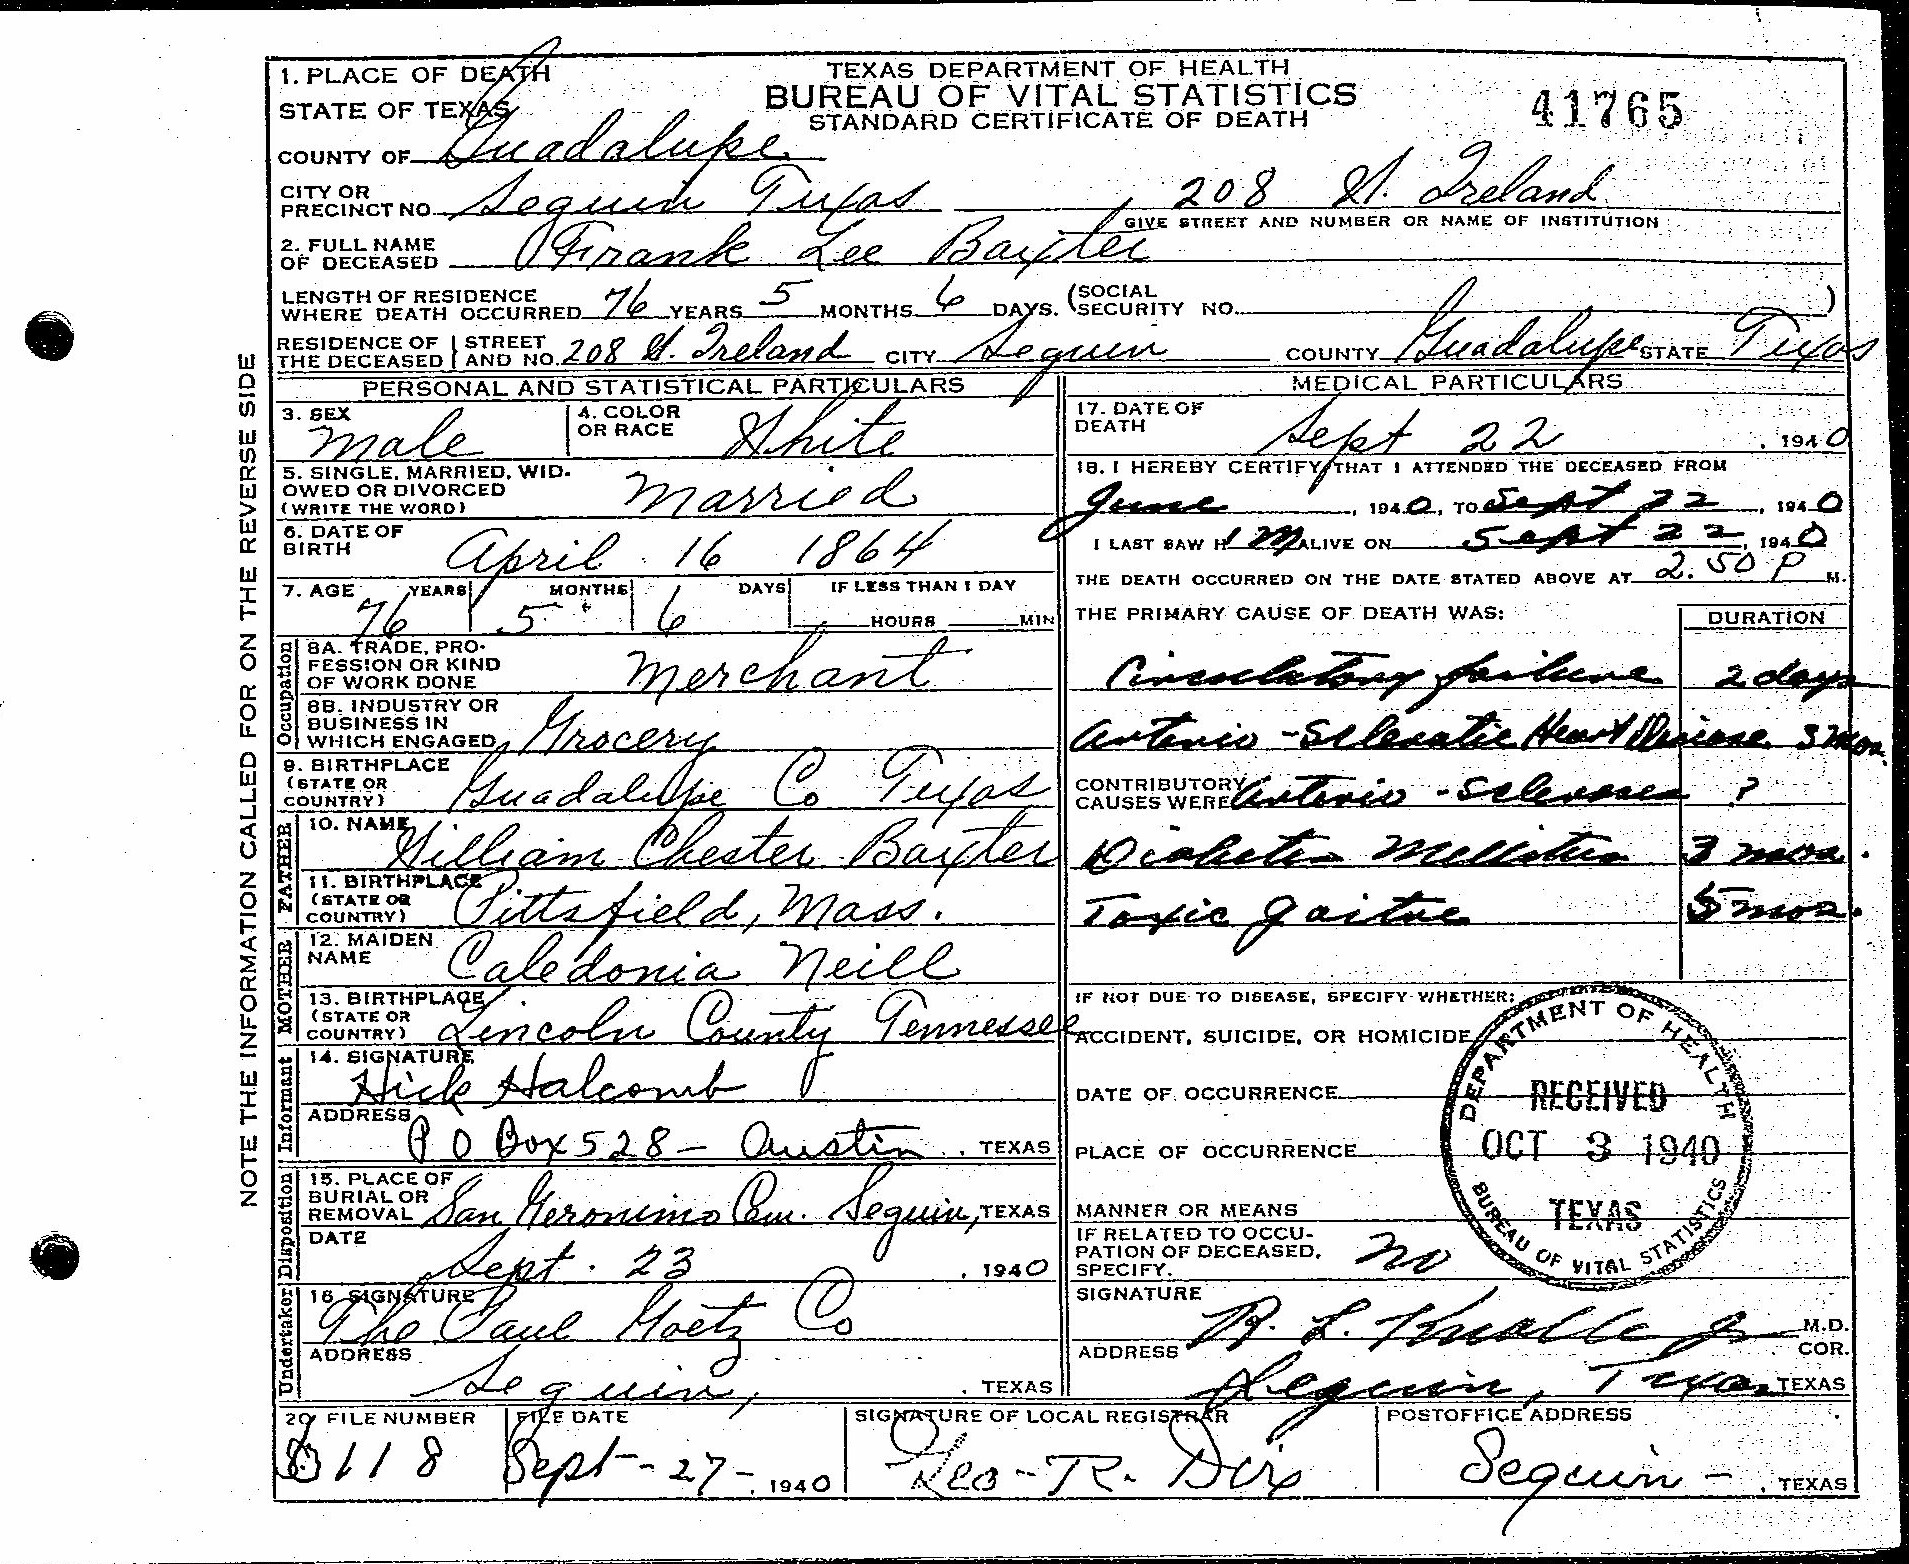 TEXAS DEPARTMENT OF HEALTH
BUREAU OF VITAL STATISTICS
STANDARD CERTIFICATE OF DEATH
41765
1. PLACE OF DEATH
STATE OF TEXAS
COUNTY OF Guadalupe
CITY OR PRECINCT NO. Seguin Texas, 208 St. Ireland
GIVE STREET AND NUMBER OR NAME OF INSTITUTION
2. FULL NAME OF DECEASED Frank Lee Baxter
LENGTH OF RESIDENCE WHERE DEATH OCCURRED 76 YEARS 5 MONTHS 6 DAYS. (SOCIAL SECURITY NO. )
RESIDENCE OF THE DECEASED STREET AND NO. 208 St. Ireland CITY Seguin COUNTY Guadalupe STATE Texas
PERSONAL AND STATISTICAL PARTICULARS
3. SEX Male 4. COLOR OR RACE White
5. SINGLE, MARRIED, WIDOWED OR DIVORCED (WRITE THE WORD) Married
6. DATE OF BIRTH April 16 1864
7. AGE YEARS MONTHS DAYS IF LESS THAN 1 DAY
76 5 6 HOURS MIN
Occupation
8A. TRADE, PROFESSION OR KIND OF WORK DONE Merchant
8B. INDUSTRY OR BUSINESS IN WHICH ENGAGED Grocery
9. BIRTHPLACE (STATE OR COUNTRY) Guadalupe Co Texas
FATHER
10. NAME William Chester Baxter
11. BIRTHPLACE (STATE OR COUNTRY) Pittsfield, Mass.
MOTHER
12. MAIDEN NAME Caledonia Neill
13. BIRTHPLACE (STATE OR COUNTRY) Lincoln County Tennessee
Informant
14. SIGNATURE Hick Halcomb
ADDRESS P O Box 528 - Austin, TEXAS
Disposition
15. PLACE OF BURIAL OR REMOVAL San Geronimo Cem. Seguin, TEXAS
DATE Sept. 23, 1940
Undertaker
16. SIGNATURE The Paul Goetz Co
ADDRESS Seguin, TEXAS
MEDICAL PARTICULARS
17. DATE OF DEATH Sept 22, 1940
18. I HEREBY CERTIFY THAT I ATTENDED THE DECEASED FROM
June, 1940, TO Sept 22, 1940
I LAST SAW HIM ALIVE ON Sept 22, 1940
THE DEATH OCCURRED ON THE DATE STATED ABOVE AT 2.50 P M.
THE PRIMARY CAUSE OF DEATH WAS: DURATION
Circulatory failure 2 days
Arterio-Sclerotic Heart Disease 3 mos.
CONTRIBUTORY CAUSES WERE Arterio-Scleroses ?
Diabetes Mellitus 3 mos.
Toxic goitre 5 mos.
IF NOT DUE TO DISEASE, SPECIFY WHETHER:
ACCIDENT, SUICIDE, OR HOMICIDE
DATE OF OCCURRENCE
PLACE OF OCCURRENCE
MANNER OR MEANS
IF RELATED TO OCCUPATION OF DECEASED, SPECIFY. no
SIGNATURE R. L. Knolle Jr M.D.
COR.
ADDRESS Seguin, Texas TEXAS
DEPARTMENT OF HEALTH
RECEIVED
OCT 3 1940
TEXAS
BUREAU OF VITAL STATISTICS
20. FILE NUMBER FILE DATE SIGNATURE OF LOCAL REGISTRAR POSTOFFICE ADDRESS
118 Sept-27-, 1940 Geo-R. Dix Seguin-, TEXAS
NOTE THE INFORMATION CALLED FOR ON THE REVERSE SIDE